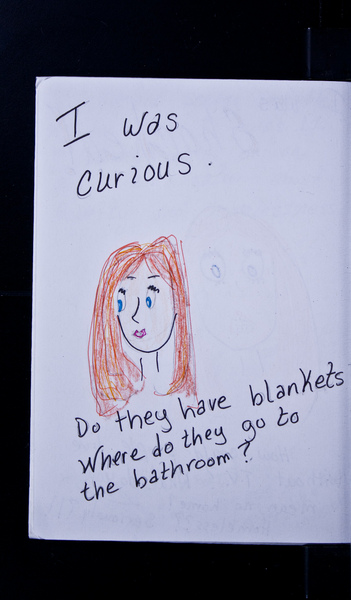 I was
curious.
Do they have blankets
Where do they go to
the bathroom?